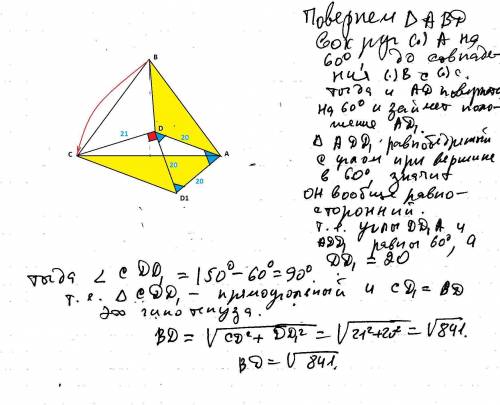 Повернем Δ ABD
B
вокруг (·) A на
60° до совпаде-
ния (·) B с (·) C.
тогда и AD повернется
21
D
20
на 60° и займет поло-
жение AD₁.
C
20
A
20
Δ ADD₁ равнобедренный
D1
с углом при вершине
в 60°, значит
он вообще равно-
сторонний.
т.е. углы DD₁A и
ADD₁ равны 60°, а
DD₁ = 20
тогда ∠ CDD₁ = 150° - 60° = 90°.
т.е. Δ CDD₁ - прямоугольный и CD₁ = BD
его гипотенуза.
BD = √CD² + DD₁² = √21² + 20² = √841.
BD = √841.